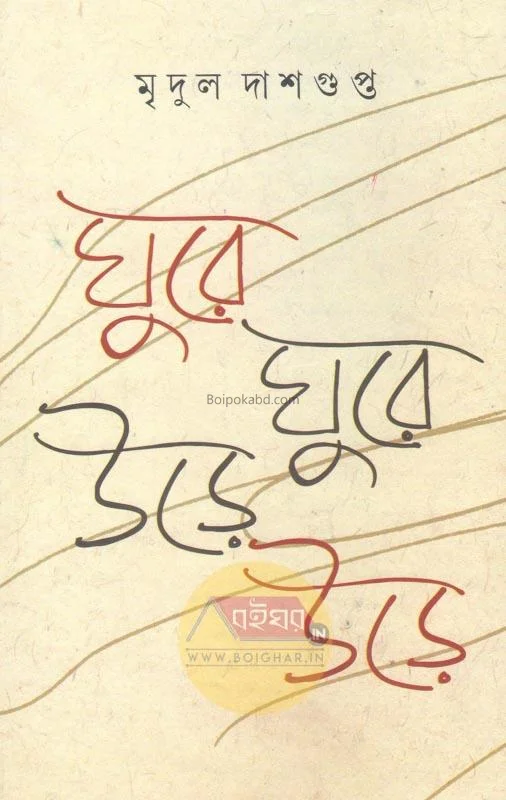 মৃদুল দাশগুপ্ত
ঘুরে
ঘুরে
Boipokabd.com
উড়ে
উড়ে
বইঘর
.IN
WWW.BOIGHAR.IN